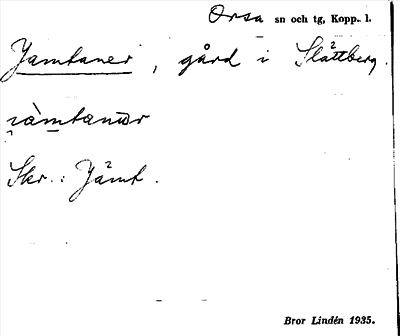 Orsa sn och tg, Kopp. l.
Jämtaner, gård i Slättberg.
Skr.: Jämt.
Bror Lindén 1935.